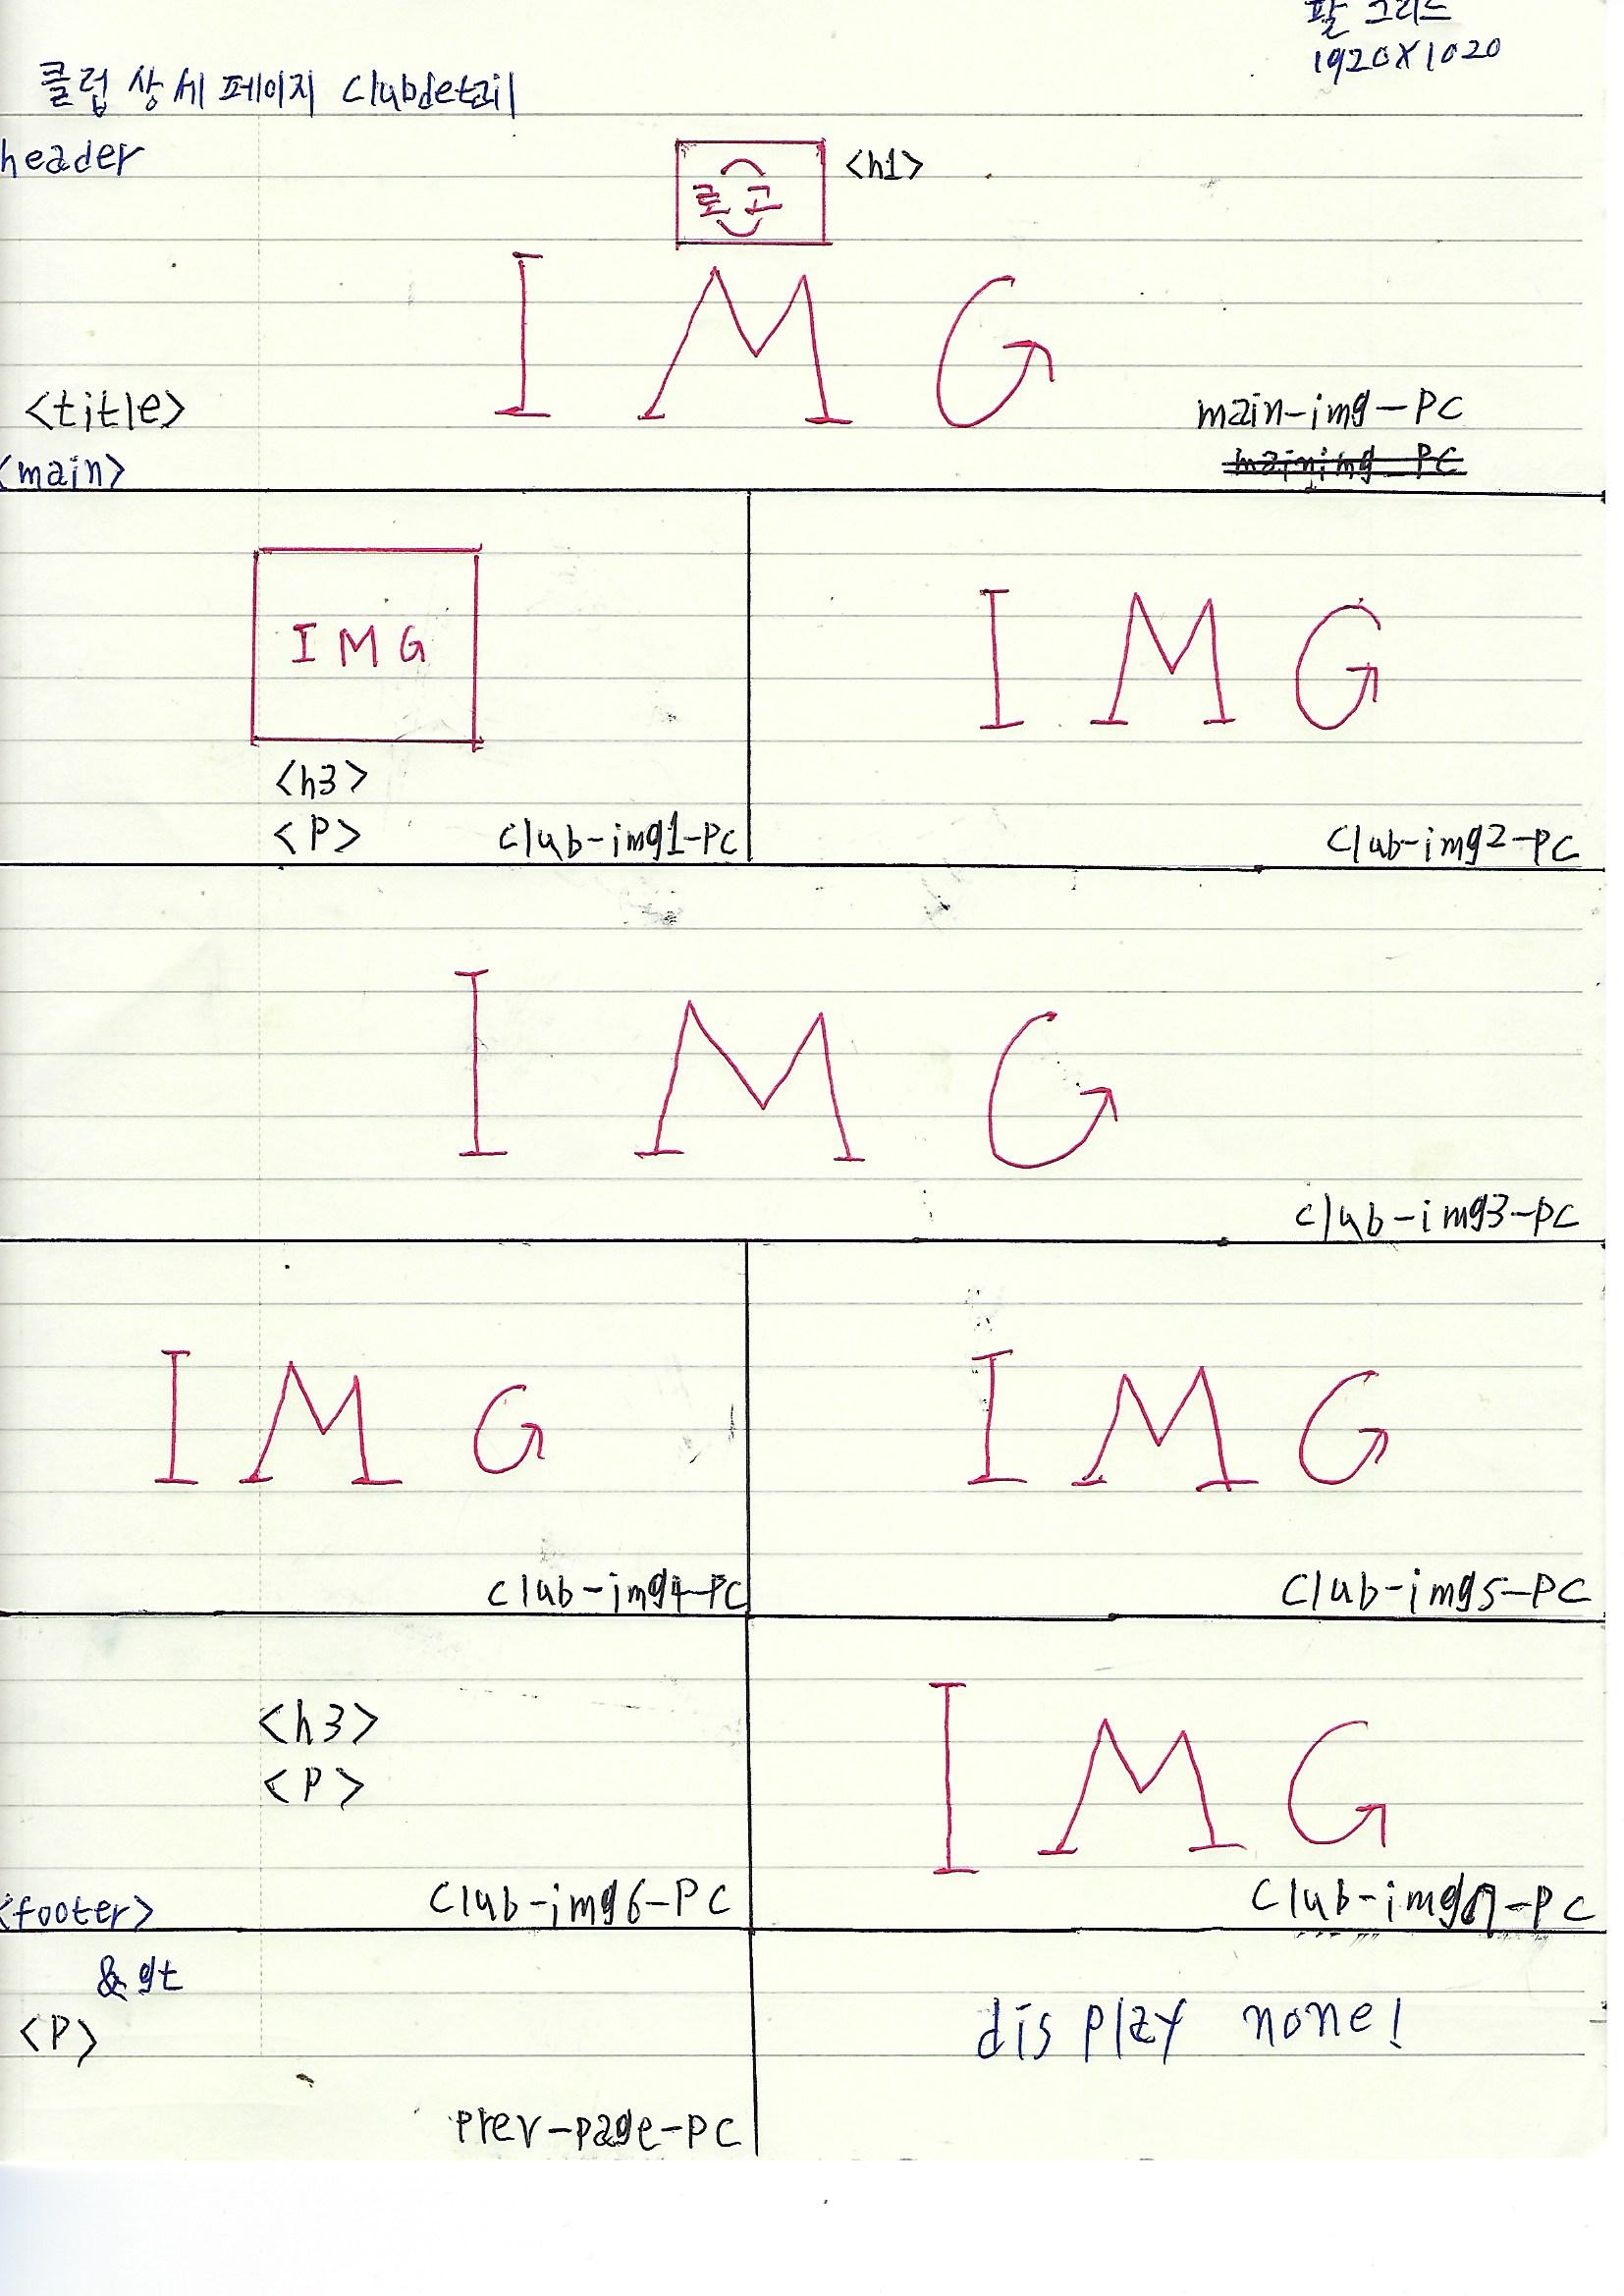 팔 그리드
1920X1020
클럽 상세 페이지 Clubdetail
header
로고
<h1>
I M G
<title>
main-img-PC
mainimg-PC
<main>
I M G
<h3>
<P>
club-img1-PC
I M G
club-img2-PC
I M G
club-img3-PC
I M G
club-img4-PC
I M G
club-img5-PC
<h3>
<P>
club-img6-PC
I M G
club-img7-PC
<footer>
&gt
<P>
prev-page-PC
display none!